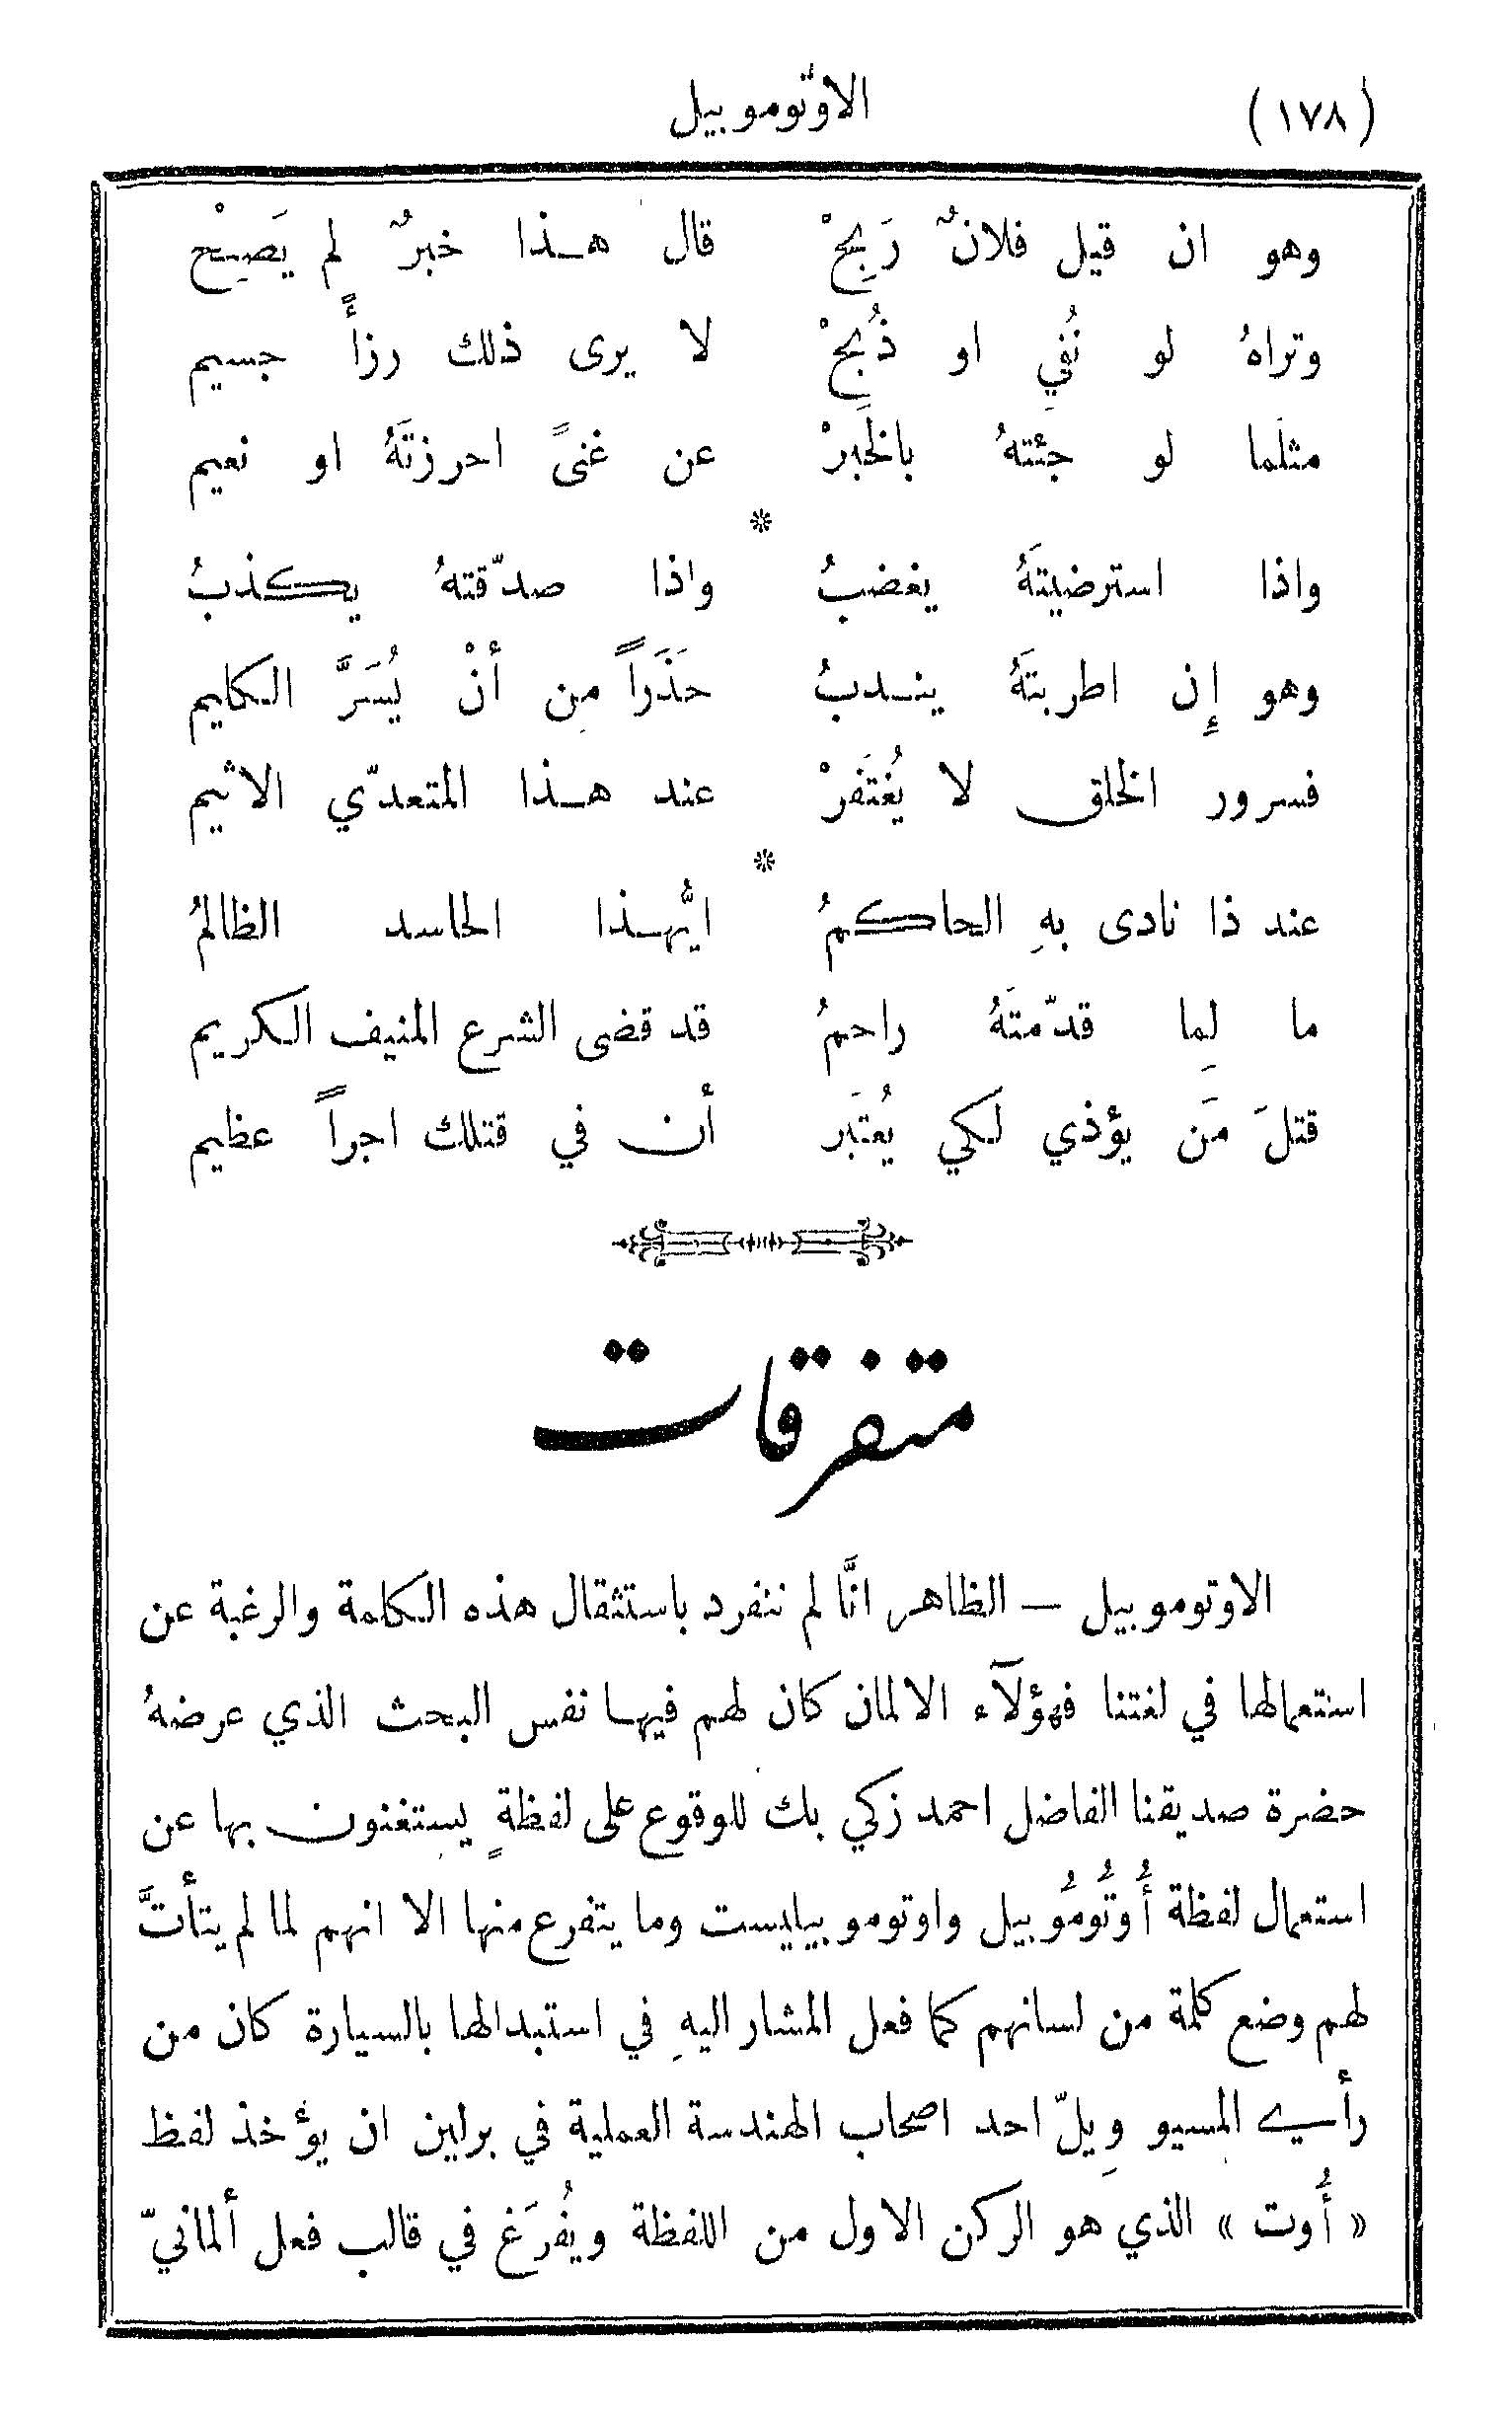 (١٧٨) الاوتوموبيل
وهو ان قيل فلانٌ رَبِحْ قال هـذا خبرٌ لم يَصِحْ
وتراهُ لو نُفِي او ذُبِحْ لا يرى ذلك رزأً جسيم
مثلَما لو جئتهُ بالخَبرْ عن غنىً احرزتَهُ او نعيم
*
واذا استرضيتَهُ يغضبُ واذا صدّقتهُ يكذبُ
وهو إِن اطربتَهُ ينـدبُ حَذَراً مِن أنْ يُسَرَّ الكليم
فسرور الخلق لا يُغتَفَرْ عند هـذا المتعدّي الاثيم
*
عند ذا نادى بهِ الحاكمُ ايُّهـذا الحاسد الظالمُ
ما لِما قدّمتَهُ راحمُ قد قضى الشرع المنيف الكريم
قتلَ مَن يؤذي لكي يُعتَبَر أن في قتلك اجراً عظيم
متفرقات
الاوتوموبيل — الظاهر انَّا لم ننفرد باستثقال هذه الكلمة والرغبة عن
استعمالها في لغتنا فهؤلآء الالمان كان لهم فيهـا نفس البحث الذي عرضهُ
حضرة صديقنا الفاضل احمد زكي بك للوقوع على لفظةٍ يستغنون بها عن
استعمال لفظة أُوتُومُوبيل واوتوموبيليست وما يتفرع منها الا انهم لما لم يتأتَّ
لهم وضع كلمة من لسانهم كما فعل المشار اليهِ في استبدالها بالسيارة كان من
رأي المسيو وِيلّ احد اصحاب الهندسة العملية في برلين ان يؤخذ لفظ
« أُوت » الذي هو الركن الاول من اللفظة ويُفرَغ في قالب فعل ألمانيّ